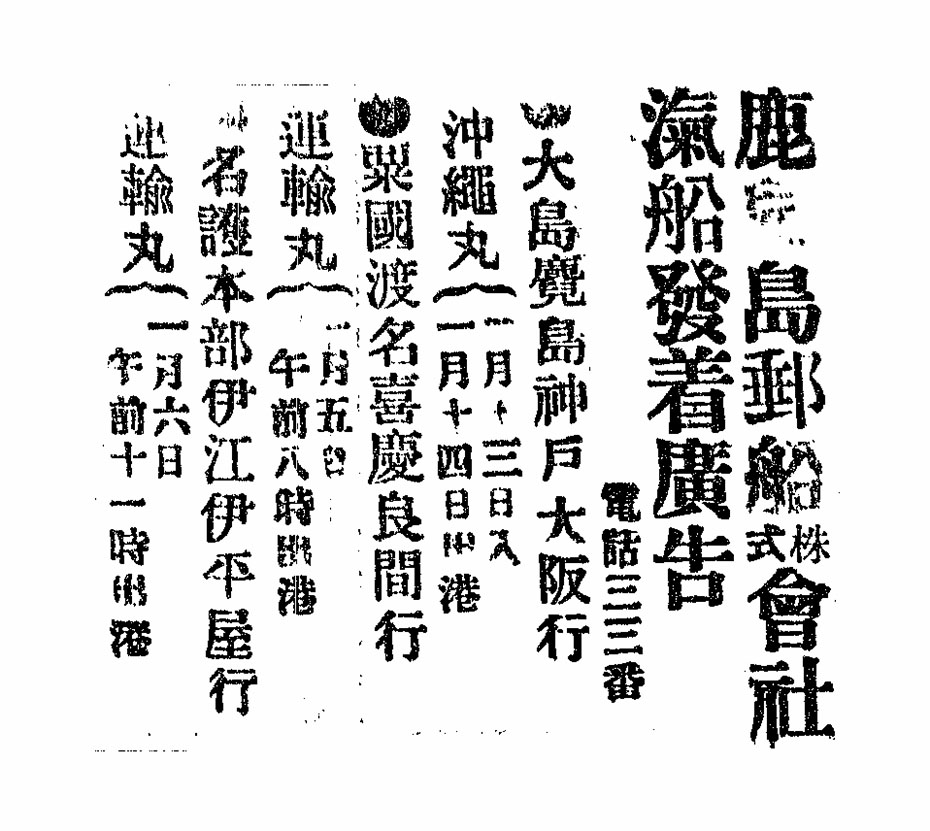 鹿島郵船株式會社
滊船發着廣告
電話三三番
大島鹿島神戸大阪行
沖繩丸
一月十三日入
一月十四日出港
粟國渡名喜慶良間行
運輸丸
一月五日
午前八時出港
名護本部伊江伊平屋行
運輸丸
一月六日
午前十一時出港